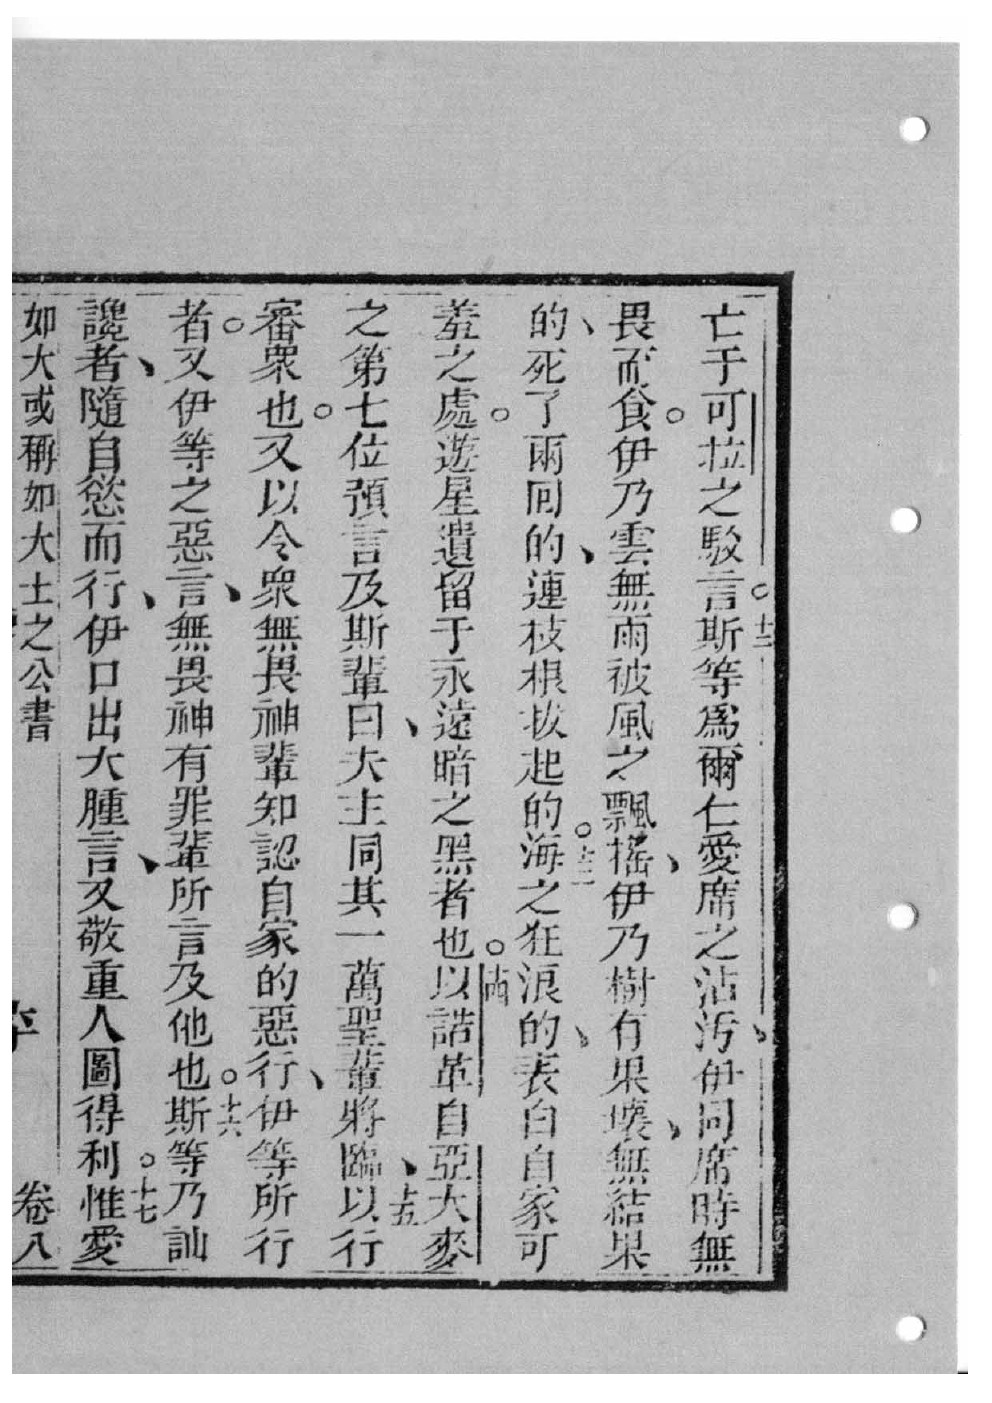 亡于可拉之駁言。十二斯等爲爾仁愛席之沾汚、伊同席時無
畏而食。伊乃雲無雨被風之飄搖、伊乃樹有果壞、無結果
的、死了兩回的、連枝根拔起的。十三海之狂浪的、表白自家可
羞之處。遊星遺留于永遠暗之黑者也。十四以諾革自亞大麥
之第七位預言及斯輩曰、夫主同其一萬聖輩將臨、十五以行
審衆也。又以令衆無畏神輩知認自家的惡行、伊等所行
者。又伊等之惡言、無畏神有罪輩所言及他也。十六斯等乃訕
讒者、隨自慾而行、伊口出大腫言、又敬重人圖得利。十七惟愛
如大或稱如大士之公書
卷八